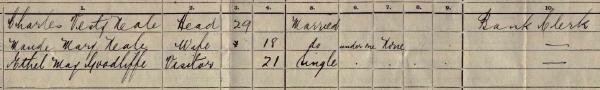 1. 2. 3. 4. 5. 6. 7. 8. 9. 10.
Charles Vesty Neale Head 29 Married Bank Clerk
Maude Mary Neale Wife 18 do under one None —
Ethel May Goodliffe Visitor 21 Single —